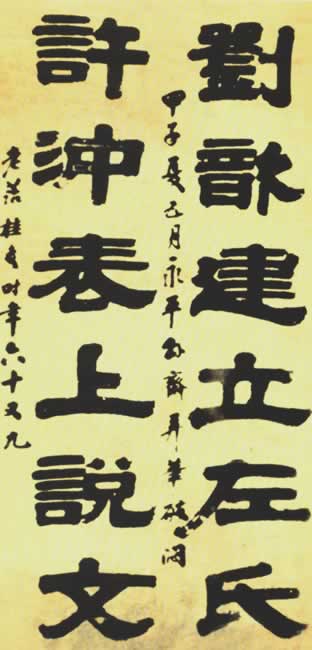 劉歆建立左氏
甲子夏五月永平齋弄筆破悶
許沖表上說文
老苔桂馥時年六十又九